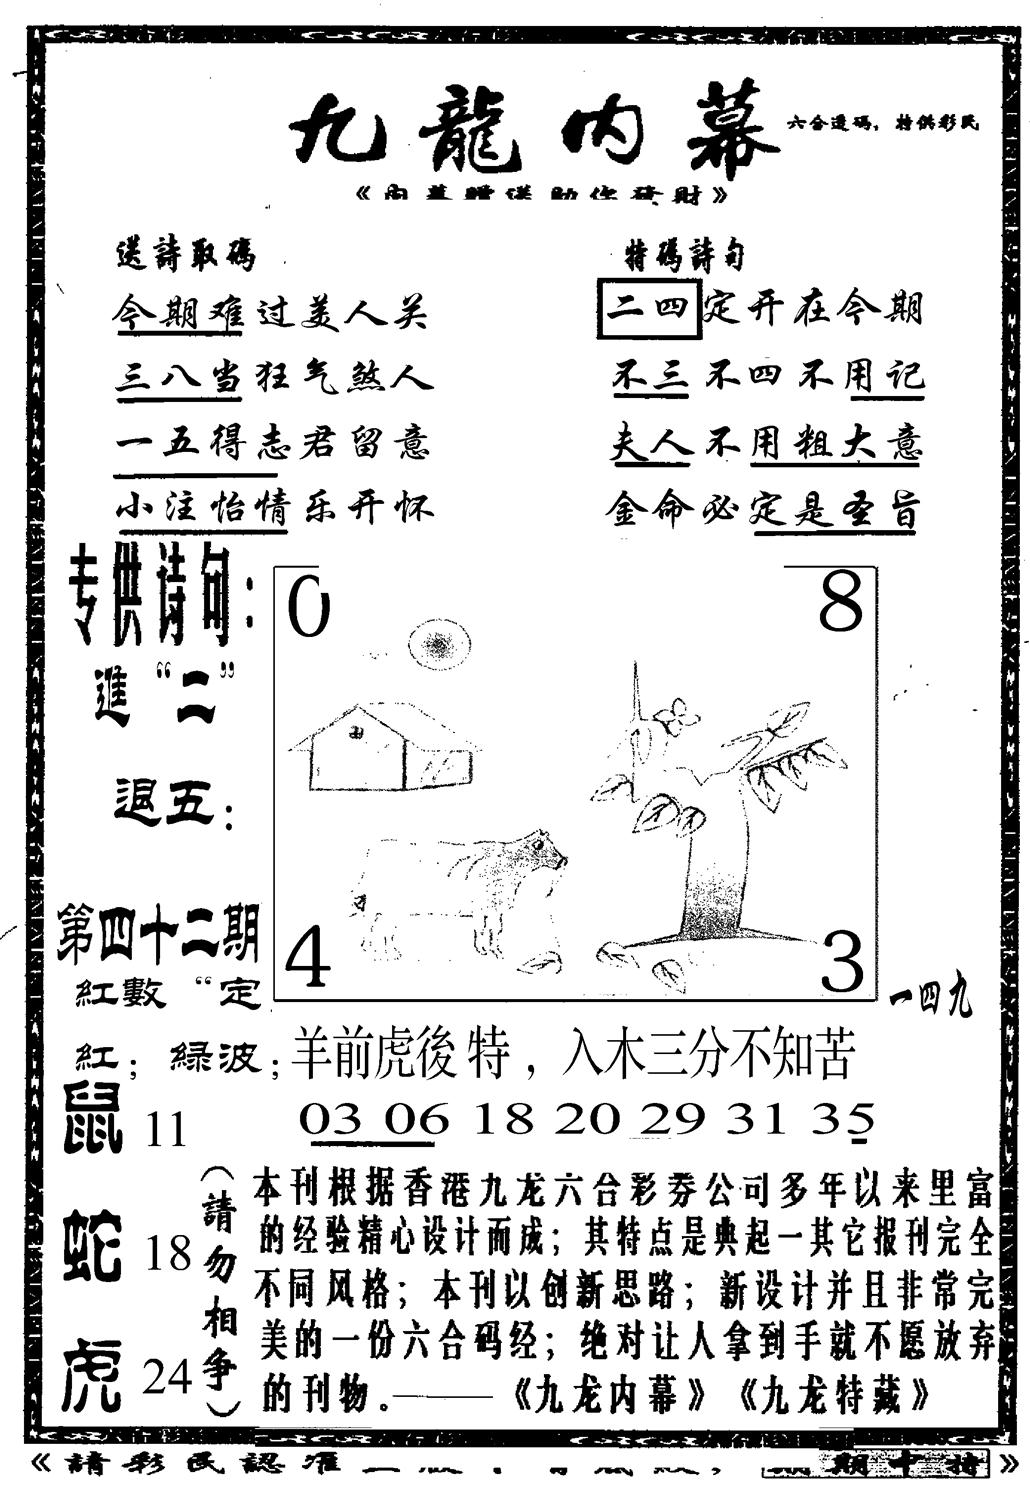 九龍内幕
六合透碼，特供彩民
《内幕贈送 助你發財》
送詩取碼
今期难过美人关
三八当狂气煞人
一五得志君留意
小注怡情乐开怀
特碼詩句
二四定开在今期
不三不四不用记
夫人不用粗大意
金命必定是圣旨
专供诗句：
進“二”
退五：
第四十二期
紅數“定
紅；綠波；
0
8
4
3
一四九
羊前虎後特，入木三分不知苦
03 06 18 20 29 31 35
鼠 11
蛇 18
虎 24
（請勿相争）
本刊根据香港九龙六合彩券公司多年以来里富
的经验精心设计而成；其特点是典起一其它报刊完全
不同风格；本刊以创新思路；新设计并且非常完
美的一份六合码经；绝对让人拿到手就不愿放弃
的刊物。——《九龙内幕》《九龙特藏》
《請彩民認准
期中特》